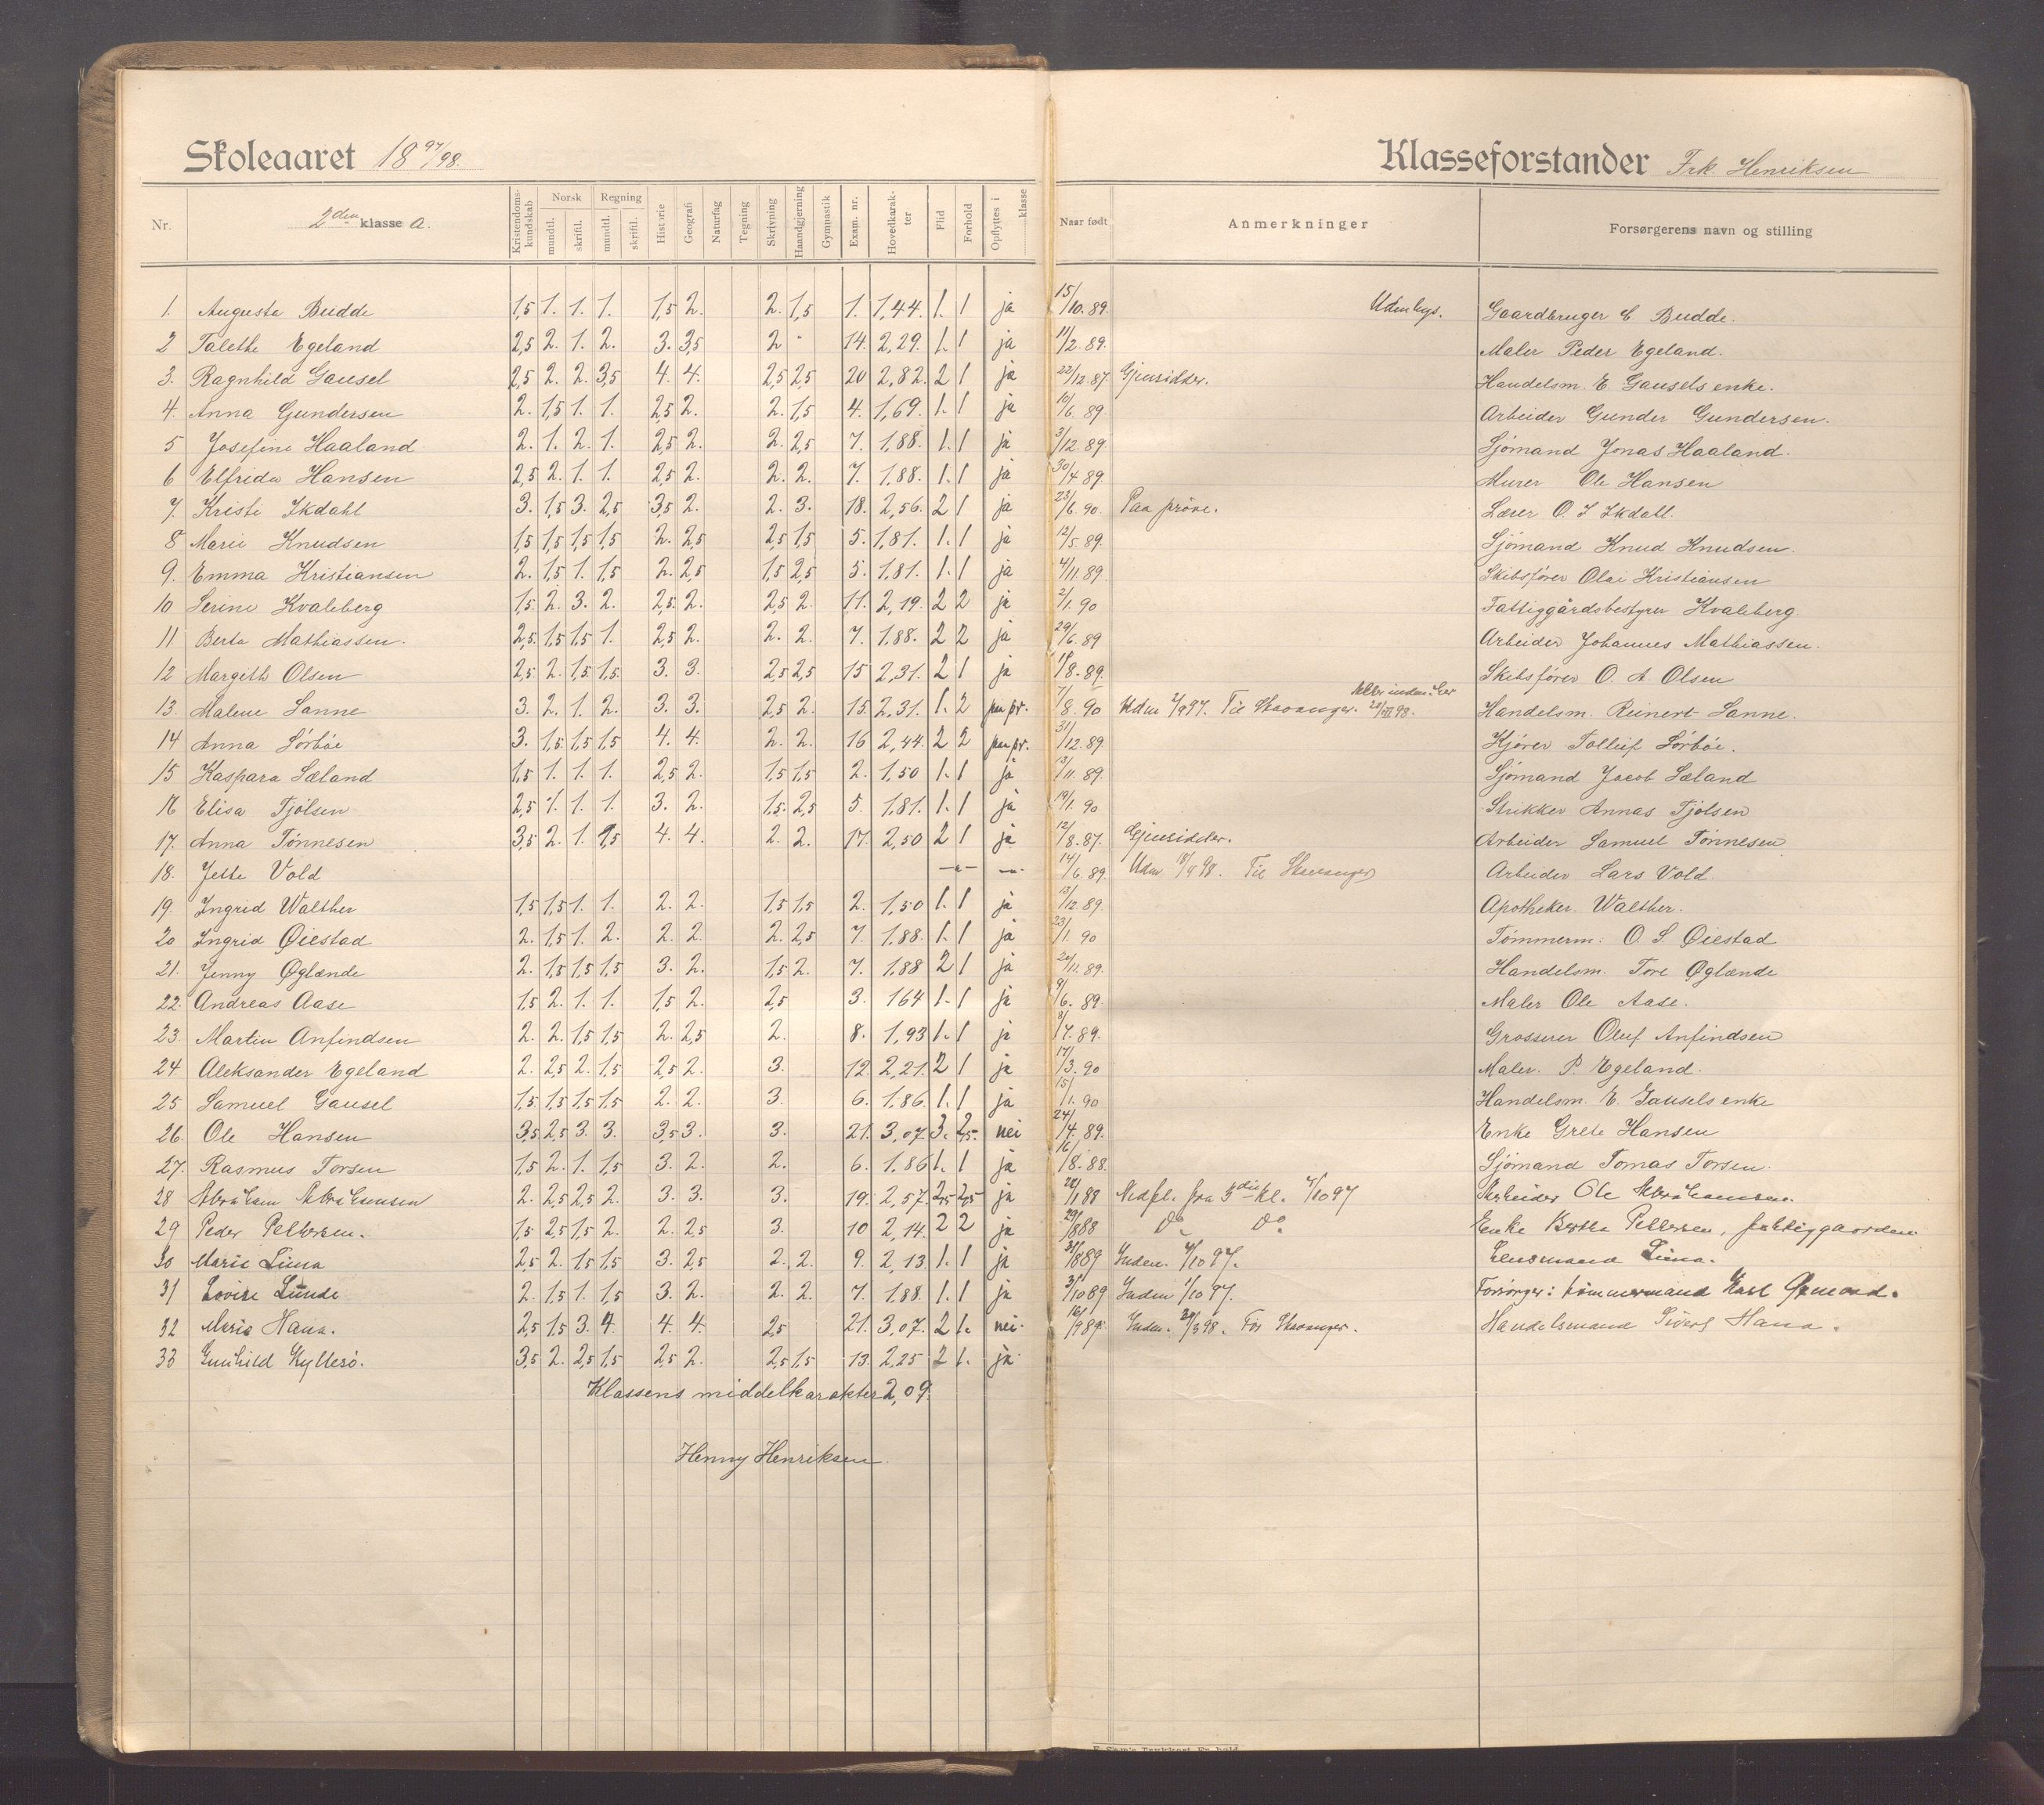 Skoleaaret 1897/98.
Klasseforstander Frk. Henriksen
Nr. 2den klasse a. Kristendomskundskab Norsk mundtl. skriftl. Regning mundtl. skriftl. Historie Geografi Naturfag Tegning Skrivning Haandgjerning Gymnastik Exam. nr. Hovedkarakter Flid Forhold Opflyttes i klasse Naar født Anmerkninger Forsørgerens navn og stilling
1. Augusta Budde 1,5 1. 1. 1. 1,5 2. 2. 1,5 1. 1,44. 1. 1 ja 15/10.89. Udenbys. Gaardbruger E Budde.
2 Talethe Egeland 2,5 2. 1. 2. 3. 3,5 2 - 14. 2,29. 1. 1 ja 11/2.89. Maler Peder Egeland.
3. Ragnhild Gausel 2,5 2. 2. 3,5 4. 4. 2,5 2,5 20 2,82. 2 1 ja 22/12.87. Gjensidder. Handelsm. E. Gausels enke.
4. Anna Gundersen 2. 1,5 1. 1. 2,5 2. 2. 1,5 4. 1,69. 1. 1 ja 10/6.89. Arbeider Gunder Gundersen.
5 Josefine Haaland 2. 1. 2. 1. 2,5 2. 2. 2,5 7. 1,88. 1. 1 ja 3/12.89 Sjömand Jonas Haaland.
6 Elfrida Hansen 2,5 2. 1. 1. 2,5 2. 2. 2. 7. 1,88. 1. 1 ja 30/4 89. Murer Ole Hansen
7. Kristi Ikdahl 3. 1,5 3. 2,5 3,5 2. 2. 3. 18. 2,56. 2 1 ja 23/6.90. Paa pröve. Lærer O. I Ikdall.
8 Marie Knudsen 1,5 1,5 1,5 1,5 2. 2,5 2,5 1,5 5. 1,81. 1. 1 ja 12/5.89. Sjömand Knud Knudsen.
9. Emma Kristiansen 2. 1,5 1. 1,5 2. 2,5 1,5 2,5 5. 1,81. 1. 1 ja 4/11.89. Skibsförer Olai Kristiansen
10 Serine Kvaleberg 1,5 2. 3. 2. 2,5. 2. 2,5 2. 11. 2,19. 2 2 ja 2/1.90 Fattiggårdsbestyrer Kvaleberg.
11 Berta Mathiassen. 2,5. 1,5 1,5 1. 2,5 2. 2. 2. 7. 1,88. 2 2 ja 29/6.89 Arbeider Johannes Mathiassen.
12 Margith Olsen 2,5 2. 1,5 1,5. 3. 3. 2,5 2,5 15 2,31. 2 1 ja 1/8.89. Skibsförer O. A Olsen
13. Malene Sanne 3. 2. 1. 2. 3. 3. 2,5 2. 15. 2,31. 1. 2 paa pr. 7/8.90 Udm 2/9 97. Til Stavanger. Atter inden. her 22/III 98. Handelsm. Reinert Sanne.
14 Anna Sörböe 3. 1,5. 1,5 1,5 4. 4. 2. 2. 16 2,44. 2 2 paa pr. 31/12.89 Kjörer Tolleif Sörböe.
15 Kaspara Sæland 1,5 1. 1. 1. 2,5 2. 1,5 1,5 2. 1,50 1. 1 ja 13/11.89. Sjömand Jacob Sæland
16 Elisa Tjölsen 2,5 1. 1. 1. 3. 2. 1,5. 2,5 5. 1,81. 1. 1 ja 19/1.90 Snikker Annas Tjölsen
17. Anna Tönnesen 3,5 2. 1. 1,5 4. 4. 2. 2. 17. 2,50 2 1 ja 12/8.87. Gjensidder. Arbeider Samuel Tönnesen
18. Jette Vold 14/6.89. Til Stavanger Arbeider Lars Vold.
19. Ingrid Walther 1,5 1,5 1. 1. 2. 2. 1,5 1,5 2. 1,50 1. 1 ja 13/12.89. Apotheker. Walther.
20 Ingrid Øiestad 2. 1,5 1. 2. 2. 2. 2. 2,5 7. 1,88. 1. 1 ja 23/1.90 Tömmerm. O. S. Øiestad
21. Jenny Øglænde 2. 1,5 1,5 1,5 3. 2. 1,5 2. 7. 1,88 2 1 ja 24/11.89. Handelsm. Tore Øglænde
22. Andreas Aase 1,5 2. 1. 1. 1,5 2. 2,5 3. 164 1. 1 ja 9/6.89. Maler Ole Aase.
23. Martin Anfindsen 2. 2. 1,5 1,5 2. 2,5 2. 8. 1,93 1. 1 ja 8/7.89. Grosserer Oluf Anfindsen
24 Aleksander Egeland 2. 2,5 2. 1,5 2,5 2. 3. 12. 2,21. 2 1 ja 17/3.90 Maler. P. Egeland.
25 Samuel Gausel 1,5 1,5 1,5 1,5 2. 2. 3. 6. 1,86. 1. 1 ja 15/1.90 Handelsm. E. Gausels enke
26. Ole Hansen 3,5 2,5 3. 3. 3,5 3. 3. 21. 3,07. 3. 2,5. nei 24/4.89. Enke Grete Hansen
27. Rasmus Torsen 1,5 2. 1. 1,5 3. 2. 2. 6. 1,86 1. 1 ja 16/8.88. Sjömand Tomas Torsen.
28 Abraham Abrahamsen 2. 2,5 2,5 2. 3. 3. 3. 19. 2,57. 2,5 2,5 ja 28/1 88 Nedfl. fra 3die kl. 4/10 97 Arbeider Ole Abrahamsen.
29 Peder Pettersen. 1,5 2,5 1,5 2. 2. 2,5 3. 10 2,14. 2 2 ja 29/8 88 Do Do Enke Bertha Pettersen, fattiggaarden.
30 Marie Lima 2,5 2. 1,5 1,5 3. 2,5 2. 2. 9. 2,13. 1. 1 ja 31/8 89 Inden. 4/10 97. Lensmand Lima.
31 Lovise Lunde 2. 1,5 1. 1,5 3. 2. 2. 2. 7. 1,88. 1. 1 ja 3/10 89 Inden 1/10 97. Forsörger: tömmermand Karl
32 Maria Hana. 2,5 1,5 3. 4. 4. 4. 2,5 21. 3,07. 2 1. nei. 16/9 89. Inden. 3 98. Stavanger. Handelsmand Sivert Hana.
33 Gunhild Kyllesö. 3,5 2. 2,5 1,5 2,5 2. 2,5 1,5 13. 2,25 2 1. ja
Klassens middelkarakter 2,09.
Henny Henriksen